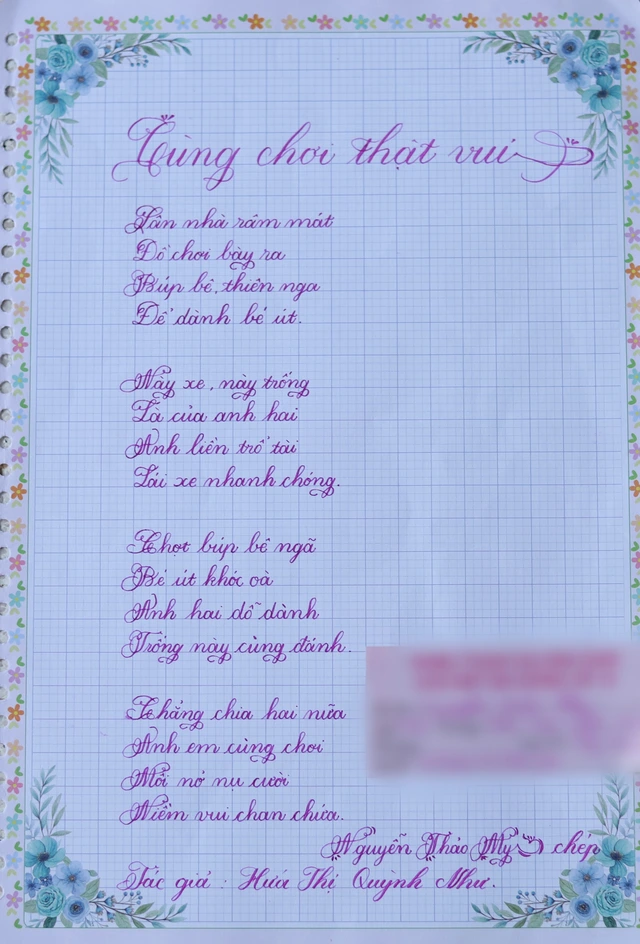 Cùng chơi thật vui
Sân nhà râm mát
Đồ chơi bày ra
Búp bê, thiên nga
Để dành bé út.
Này xe, này trống
Là của anh hai
Anh liền trổ tài
Lái xe nhanh chóng.
Chợt búp bê ngã
Bé út khóc oà
Anh hai dỗ dành
Trống này cùng đánh.
Chẳng chia hai nữa
Anh em cùng chơi
Môi nở nụ cười
Niềm vui chan chứa.
Nguyễn Thảo My chép
Tác giả : Hứa Thị Quỳnh Như.